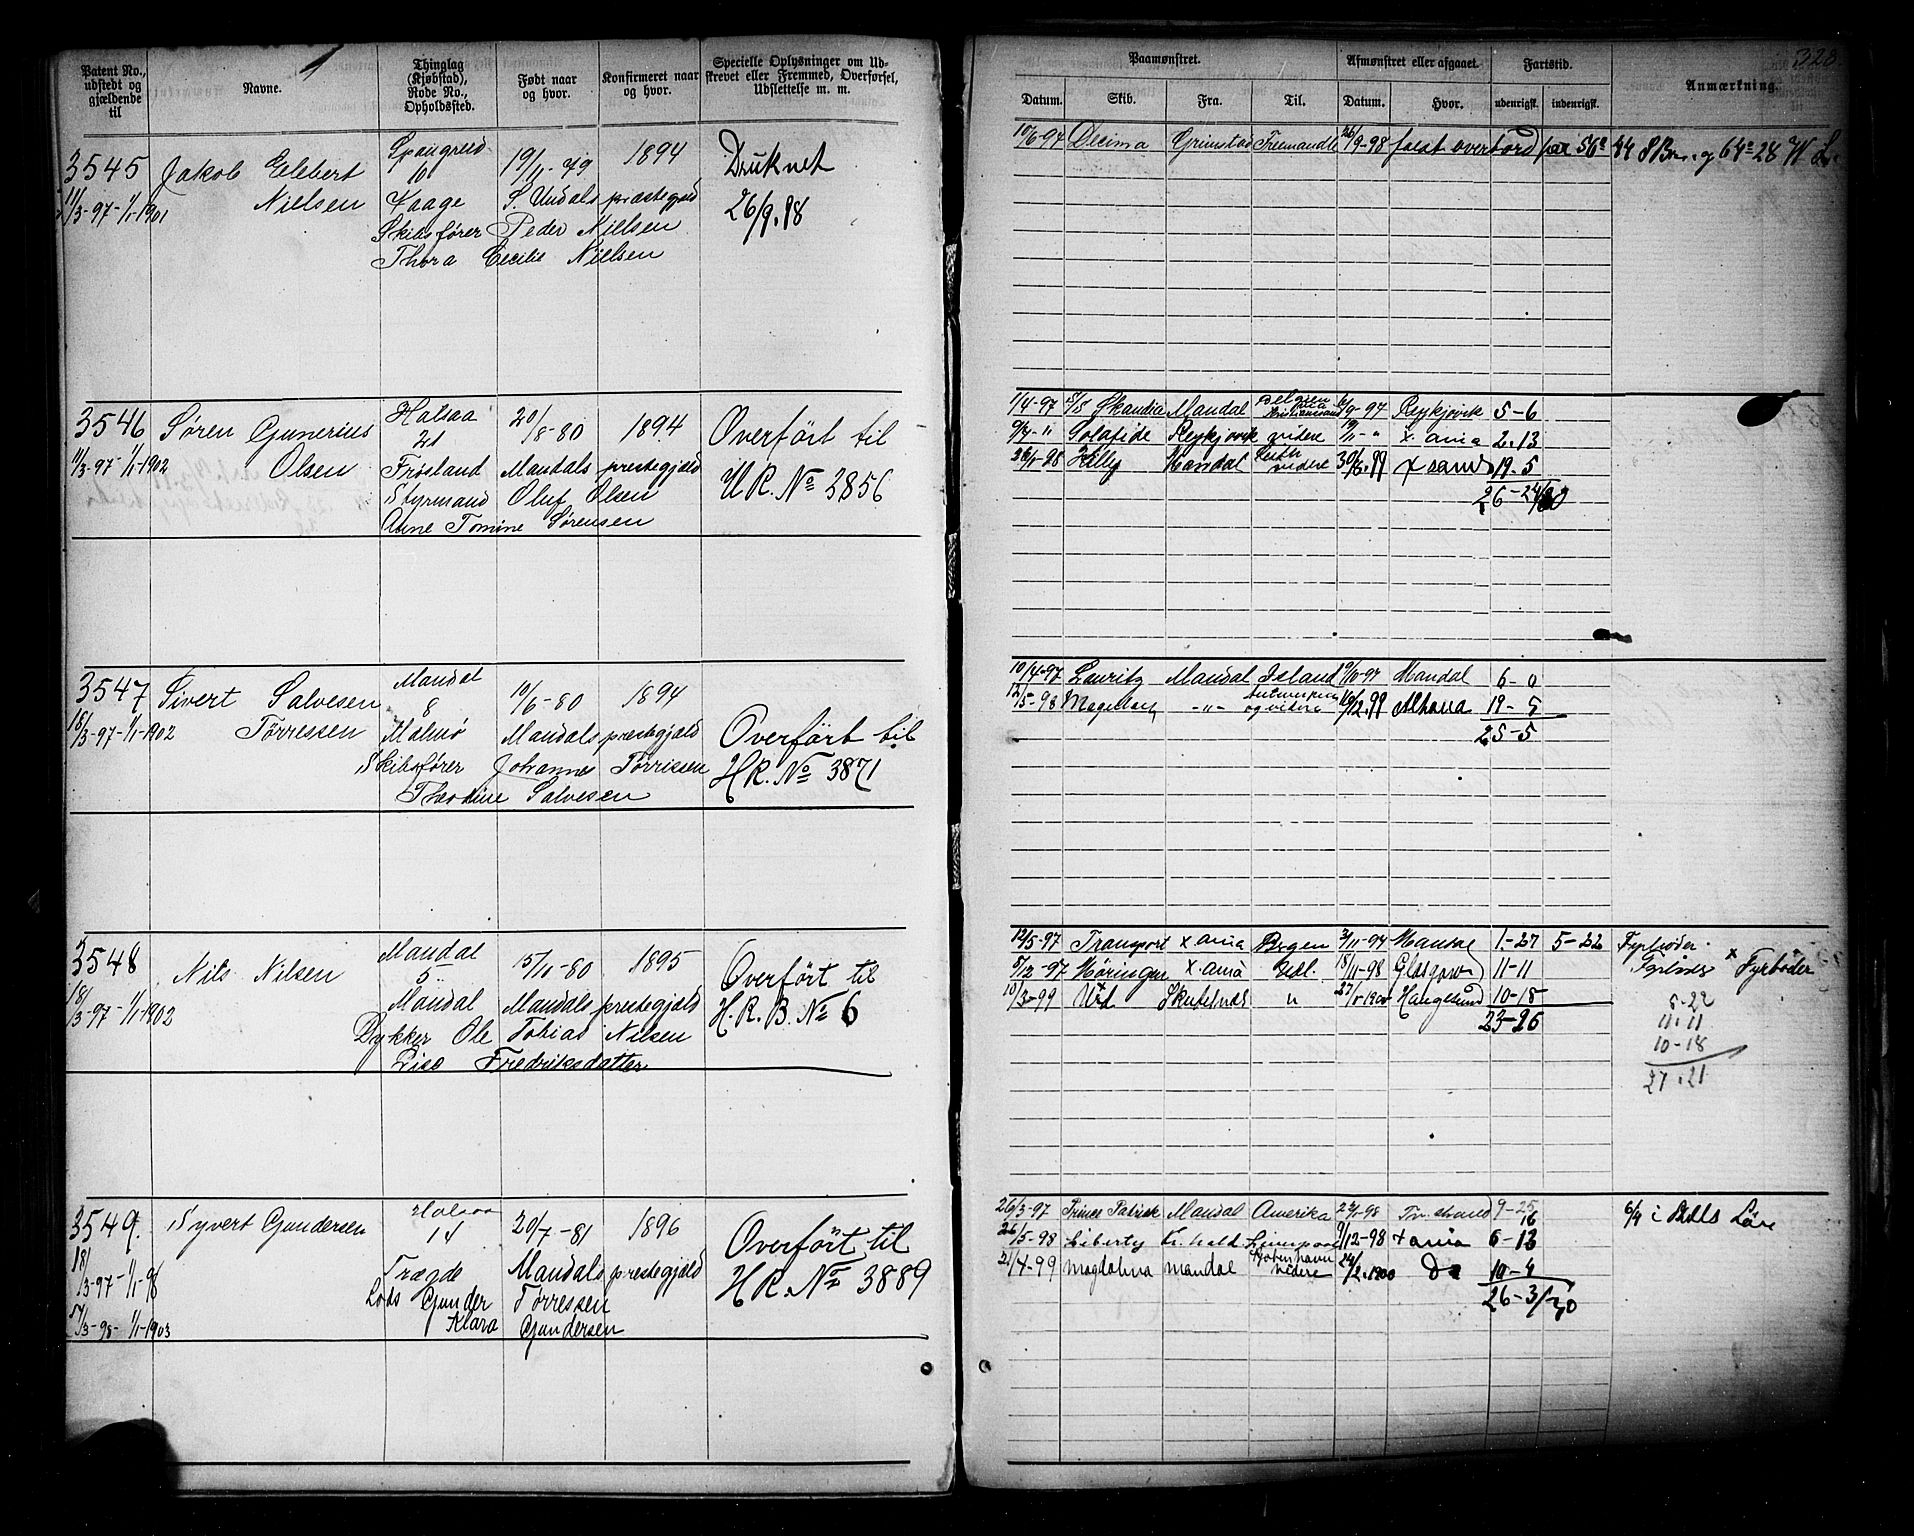 328.
Patent No., udstedt og gjældende til
Navne.
Thinglag (Kjøbstad), Rode No., Opholdssted.
Født naar og hvor.
Konfirmeret naar og hvor.
Specielle Oplysninger om Udskrevet eller Fremmed, Overførsel, Udslettelse m. m.
Paamønstret.
Afmønstret eller afgaaet.
Fartstid.
Anmærkning.
Datum.
Skib.
Fra.
Til.
Datum.
Hvor.
udenrigsk.
indenrigsk.
3545
11/3-97-1/1-1901
Jakob Edebert
Nielsen
Spangreid
10
Kaage
19/11-79
S. Undals præstegjæld
1894
Druknet
26/9.98
Skibsfører Peder Nielsen
Thora Cecilie Nielsen
10/6-97 Decima Grimstad Freemandle 26/9-98 falst overbord paa 56° 44 S Br. og 64° 28 W L.
3546
11/3-97-1/1-1902
Søren Gunerius
Olsen
Halsaa
21
Frøsland
20/8-80
Mandals prestegjæld
1894
Overført til
H.R. No 3856
Styrmand Oluf Olsen
Anne Tomine Sørensen
Skandia Mandal 6/9-97 Reykjavik 5-6
Solafide Reykjavik videre 19/11-" X.ania 2.13
26/1-98 Hilly Mandal Leith videre 30/6.99 X sand 19-5
26-24/30
3547
18/3-97-1/1-1902
Sivert Salvesen
Tørressen
Mandal
8
Malmø
10/6-80
Mandals præstegjæld
1894
Overført til
H.R. No 3871
Skibsfører Johannes Tørrissen
Theodine Salvesen
10/4-97 Lauritz Mandal Island 9/10-97 Mandal 6-0
12/5-98 -"- Antwerpen og videre 16/12.99 Altona 19-5
25-5
3548
18/3-97-1/1-1902
Nils Nilsen
Mandal
5
Mandal
15/11-80
Mandals prestegjæld
1895
Overført til
H.R.B. No 6
Dykker Ole Tobias Nilsen
Lise Fredriksdatter
12/5-97 Transport X.ania Bergen 3/11-97 Mandal 1.-27 5-22 Fyrbøder.
5/12-97 X.ania 18/11-98 Glasgow 11-11 X Fyrbøder
10/3-99 Urd " 27/1-1900 Haugesund 10-18
23-26
5-22
11.11
10-18
27.21
3549.
18/3-97-1/1-98
17/3-98-1/1-1903
Syvert Gundersen
Halsaa
14
Trægde
20/7-81
Mandals prestegjæld
1896
Overført til
H.R. No 3889
Lods Gunder Tørressen
Klara Gundersen
26/3-97 Prince Patrick Mandal Amerika 22/1-98 9-25 6/9 i Bells Löre
16
26/5-98 Liberty Fr.hald Liverpool 9/12-98 X ania 6-13
21/4-99 Magdalena Mandal Kjøbenhavn videre 24/2.1900 Do 10-4
26-3/30